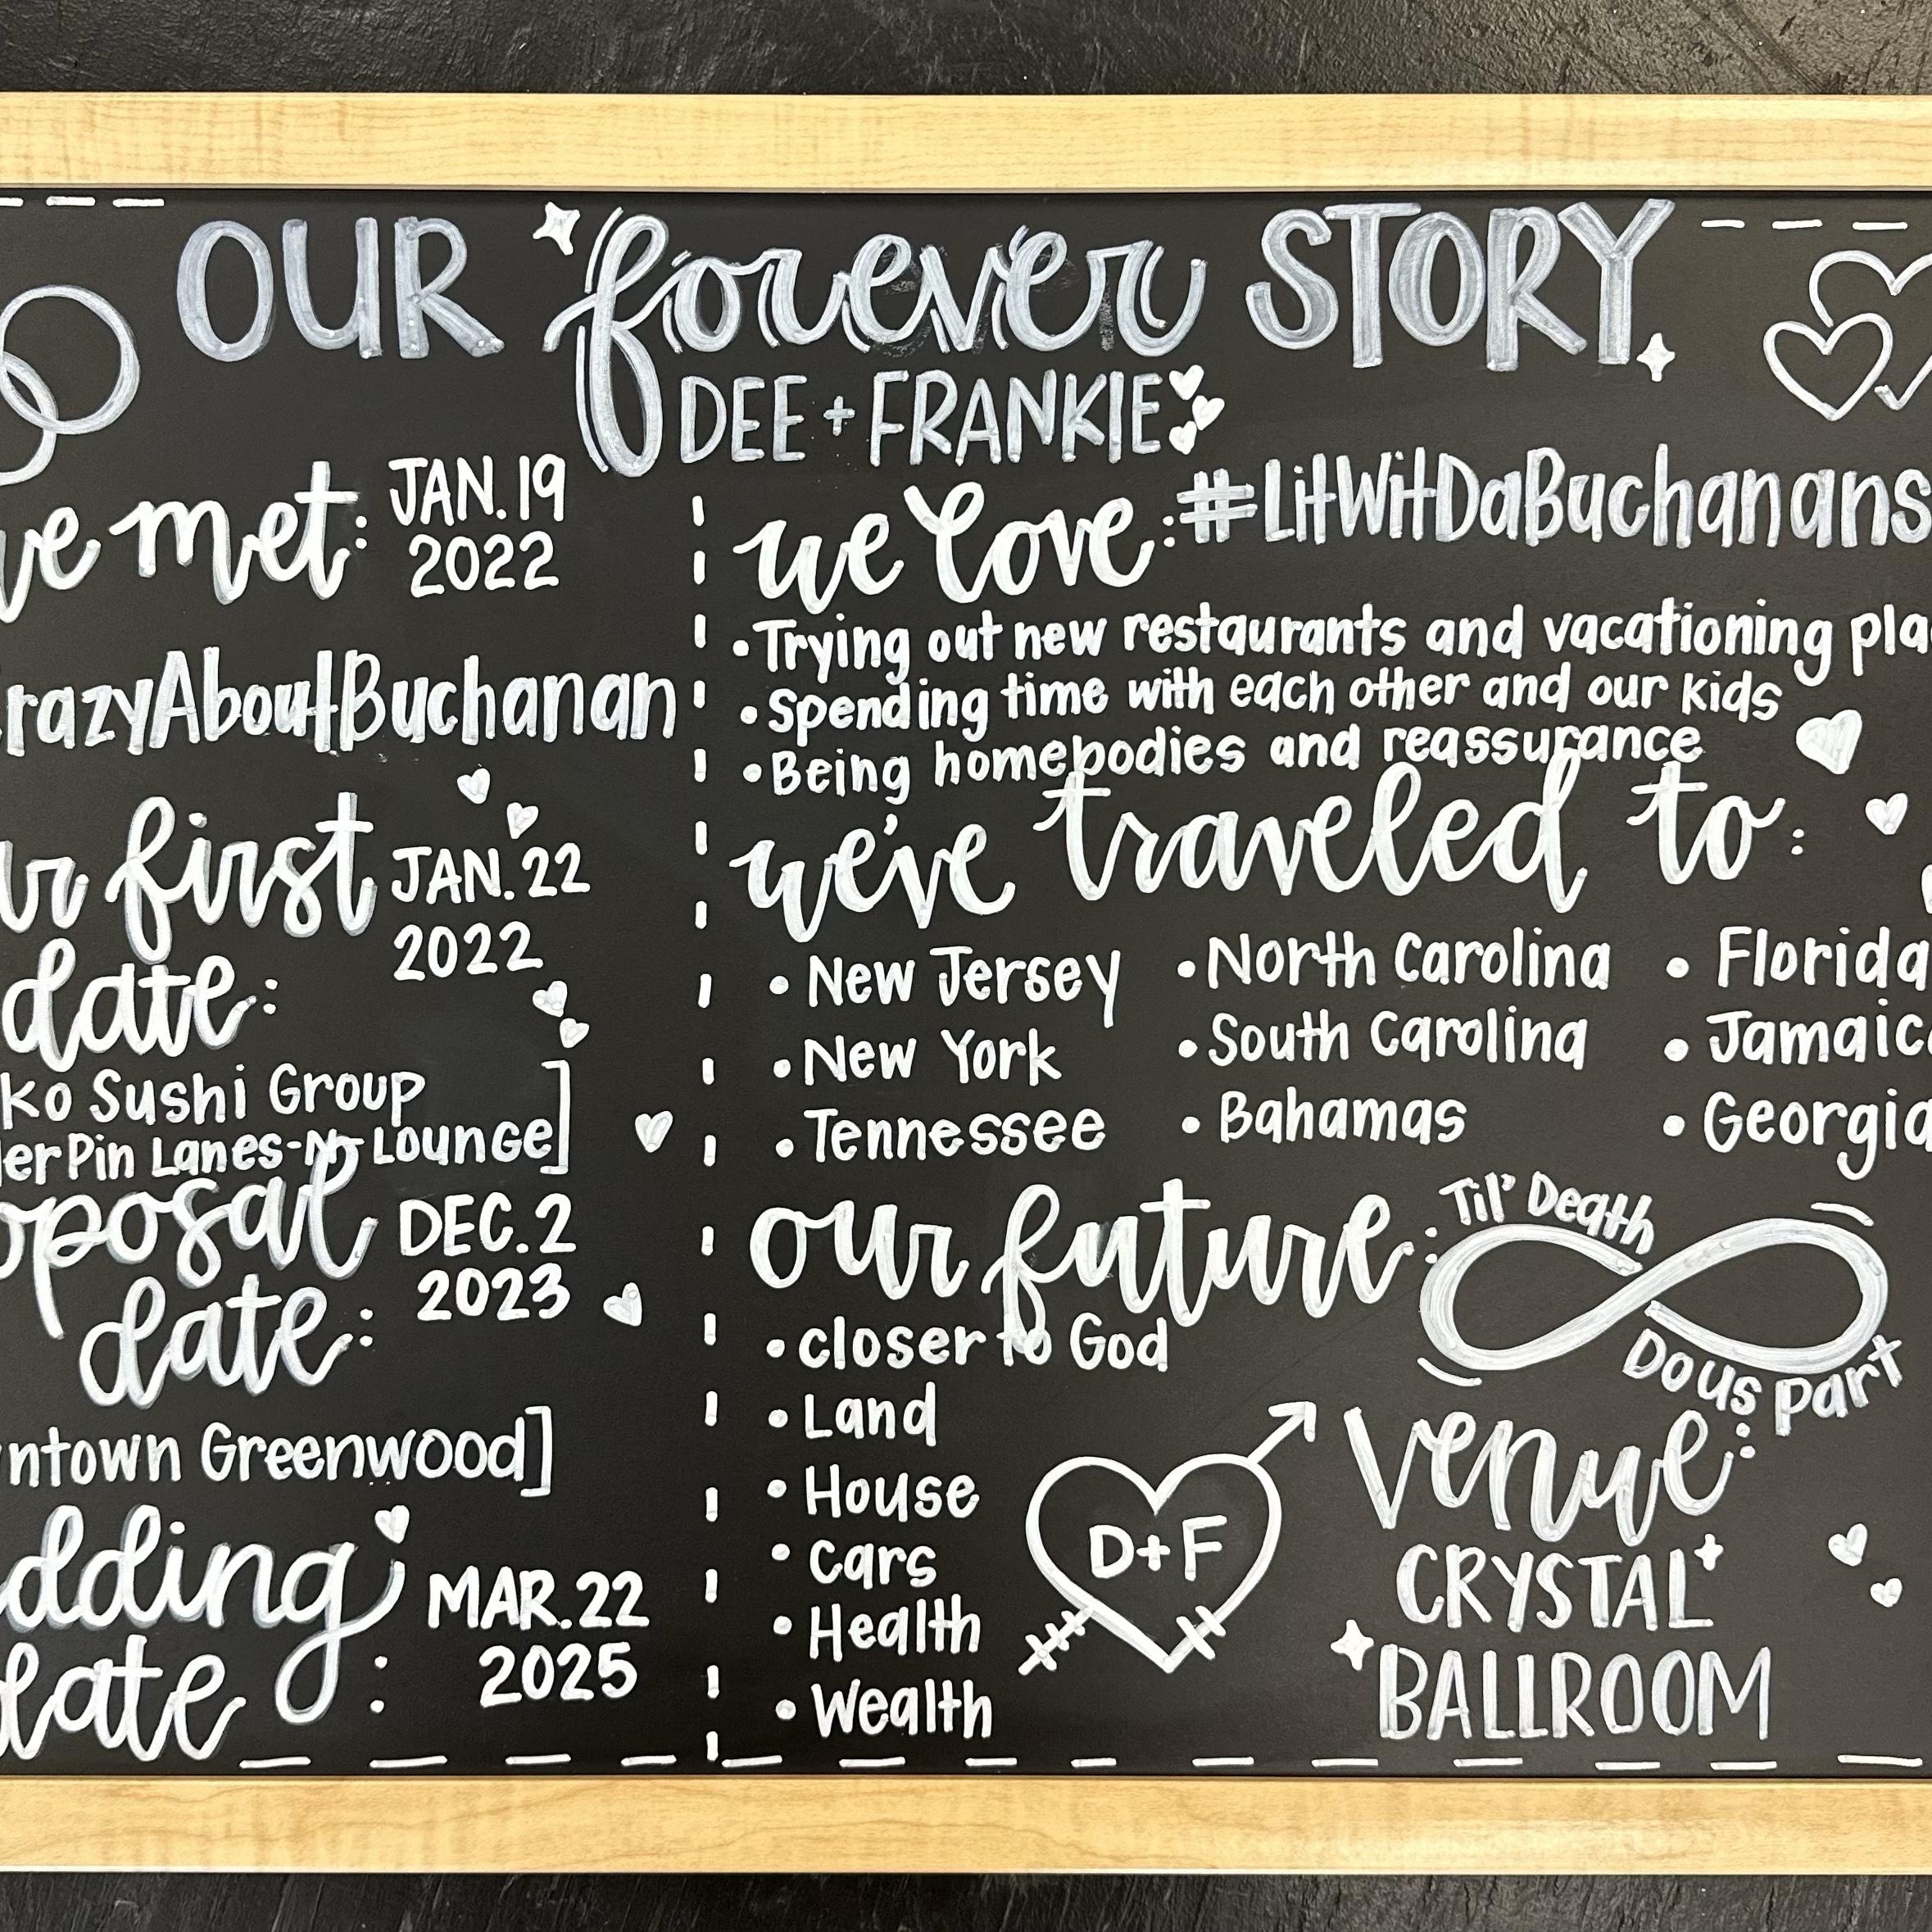 OUR forever STORY
DEE + FRANKIE
we met: JAN. 19
2022
CrazyAboutBuchanan
our first JAN. 22
date: 2022
ko Sushi Group
der Pin Lanes-N-Lounge]
oposal DEC. 2
date: 2023
ntown Greenwood]
dding MAR. 22
date: 2025
we love: #LitWitDaBuchanans
• Trying out new restaurants and vacationing pla
• Spending time with each other and our kids
• Being homebodies and reassurance
we've traveled to:
• New Jersey • North Carolina • Florida
• New York • South Carolina • Jamaica
• Tennessee • Bahamas • Georgia
our future: Til' Death
Do us part
• closer to God
• Land
• House
• Cars
• Health
• Wealth
D+F
Venue:
CRYSTAL
BALLROOM